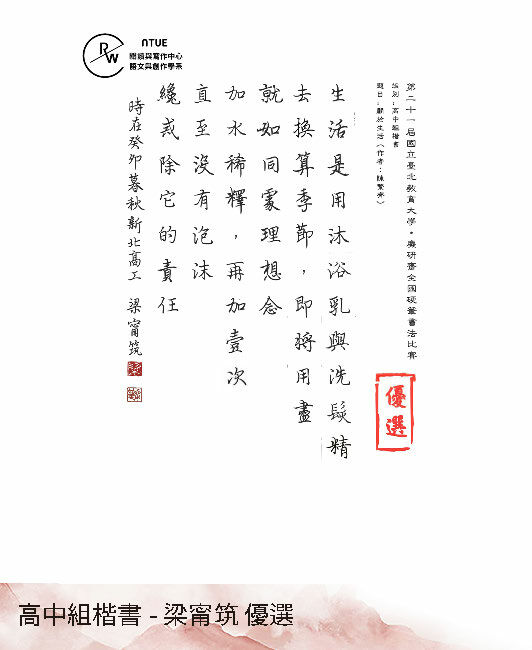 NTUE
閱讀與寫作中心
語文與創作學系
RW
第二十一屆國立臺北教育大學·廣研齋全國硬筆書法比賽
組別：高中組楷書
題目：關於生活（作者：陳繁齊）
生活是用沐浴乳與洗髮精
去換算季節，即將用盡
就如同處理想念
加水稀釋，再加壹次
直至沒有泡沫
纔戒除它的責任
時在癸卯暮秋新北高工 梁甯筑
優選
高中組楷書 - 梁甯筑 優選